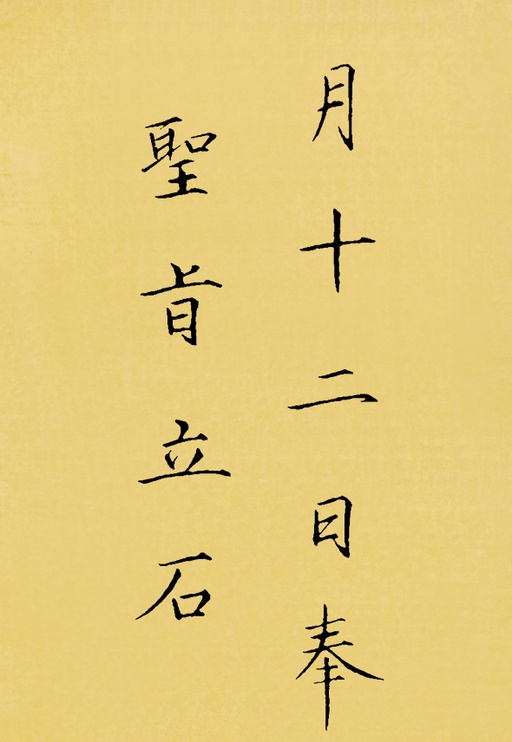 月十二日奉
聖旨立石